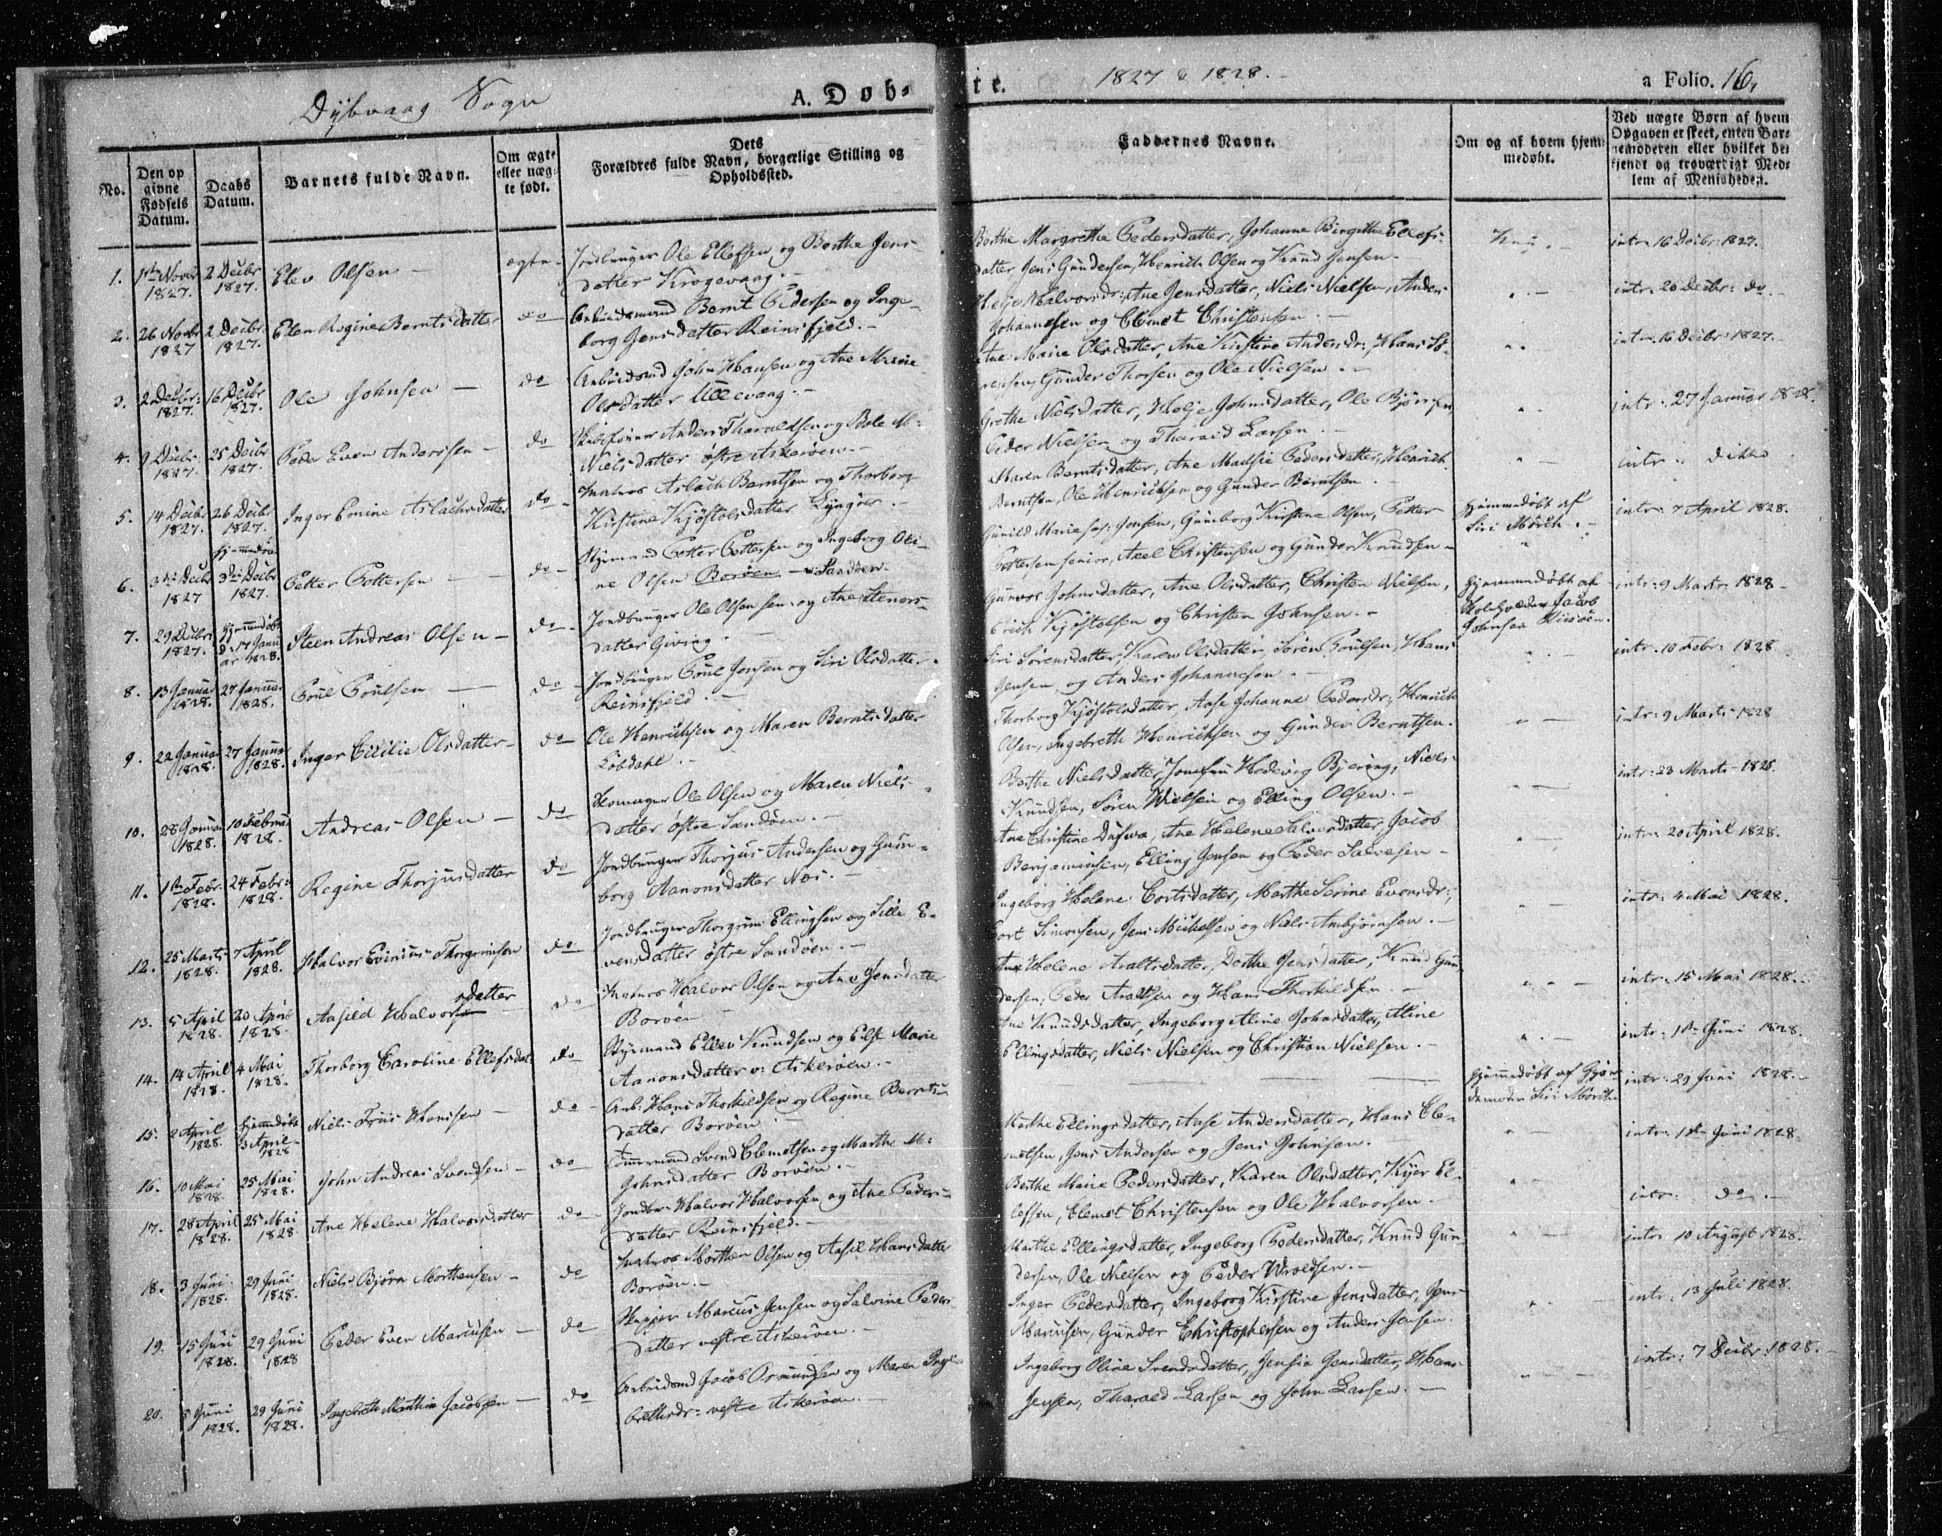 Dybvaag Sogn
A. Døb-
te.
1827 & 1828.
a Folio. 16,
No.
Den op
givne
Fødsels
Datum.
Daabs
Datum.
Barnets fulde Navn.
Om ægte
eller uæg-
te født.
Dets
Forældres fulde Navn, borgerlige Stilling og
Opholdssted.
Faddernes Navne.
Om og af hvem hjem-
medøbt.
Ved uægte Børn af hvem
Opgaven er skeet, enten Bar-
nemoderen eller hvilket be-
kjendt og troværdigt Med-
lem af Menigheden.
1. 1ste Novbr 1827. 2 Decbr 1827. Elev Olsen — ægte - Jordbruger Ole Ellefsen og Berthe Jens-
datter Krogevaag. -
Berthe Margrethe Pedersdatter, Johanne Birgithe Ellefs-
datter, Jens Gundersen, Henrich Olsen og Knud Jensen - intr: 16 Decbr: 1827.
2. 26 Novbr 1827 2 Decbr. 1827. Elen Regine Berntsdatter do Arbeidsmand Bernt Pedersen og Inge-
borg Jensdatter Reinsfjeld. -
Helje Halvorsdr:, Ane Jensdatter, Niels Nielsen, Anders
Johannesen og Clemet Christensen. - intr: 26 Decbr: do. -
3. 2 Decbr: 1827. 16 Decbr 1827. Ole Johnsen — do Arbeidsmd John Hansen og Ane Marie
Olsdatter Ullevang. -
Ane Marie Olsdatter, Ane Kirstine Andersdr:, Hans Sø-
rensen, Gunder Thorsen og Ole Nielsen. - intr: 16 Decbr 1827.
4. 9 Decbr: 1827. 25 Decbr 1827. Peder Even Andersen - do Anders Tharaldsen og Bole M:
Nielsdatter østre Askerøen. -
Grethe Nielsdatter, Helje Johnsdatter, Ole Bjørnsen,
Peder Nielsen og Tharald Larsen. - intr: 27 Januar 1828.
5. 14 Decbr 1827. 26 Decbr 1827. Inger Emine Aslachsdatter do - Matros Aslach Berntsen og Thorborg
Kirstine Kjøstolsdatter Lyngør. -
Maren Berntsdatter, Ane Madsie Pedersdatter, Henrich
Berntsen, Ole Henrichsen og Gunder Berntsen. intr: dito
6. 3die Decbr 1827 3die Decbr 1827. Petter Pettersen — do - Styrmand Petter Pettersen og Ingeborg Oli-
ne Olsen Borøen - Sandøen.
Gunild Marie Jensen, Gunborg Kirstine Olsen, Petter
Pettersen senior, Axel Christensen og Gunder Knudsen - Hjemmedøbt af
Siri Mørch. - intr: 7 April 1828.
7. 29 Decbr 1827. Hjemmedøbt d. 17 Janu-
ar 1828. Steen Andreas Olsen - do - Jordbruger Ole Olsen sen: og Ane Steners-
datter Giving. -
Gunvor Johnsdatter, Ane Olsdatter, Christen Nielsen,
Erich Kjøstolsen og Christen Johnsen. - Hjemmedøbt af
Jacob
Johnsen intr: 9 Marts 1828 -
8. 13 Januar 1828. 27 Januar 1828. Poul Poulsen — do - Jordbruger Poul Jensen og Siri Olsdatter
Reinsfjeld —
Siri Sørensdatter, Karen Olsdatter, Søren Poulsen, Hans
Jensen og Anders Johannesen. - intr: 10 Febr: 1828
9. 22 Januar 1828. 27 Januar 1828. Inger Cicilie Olsdatter - do - Ole Henrichsen og Maren Berntsdatter
Løbdahl. -
Thorborg Kjøstolsdatter, Aase Johanne Pedersdr:, Henrich
Olsen, Ingebreth Henrichsen og Gunder Berntsen. intr: 9 Marts 1828
10. 28 Januar 1828. 10 Februar 1828. Andreas Olsen — do Ole Olsen og Maren Niels-
datter østre Sandøen. -
Berthe Nielsdatter, Hedevig Bjering, Niels
Knudsen, Søren Nielsen og Elling Olsen. - intr: 23 Marts 1828.
11. 1ste Febr. 1828. 24 Febr: 1828. Regine Thorjusdatter do Jordbruger Thorjus Andersen og Gun-
borg Aanonsdatter Næs. -
Ane Christine, Ane Helene Salvesdatter, Jacob
Benjaminsen, Elling Jensen og Peder Salvesen - intr: 20 April 1828.
12. 25 Marts 1828. 7 April 1828. Halvor Evinius Thorgrimsen do - Jordbruger Thorgrim Ellingsen og Sille E-
vensdatter østre Sandøen. -
Ingeborg Helene Cortsdatter, Marthe Serine Evensdr:,
Cort Simonsen, Jens Michelsen og Niels Ambjørnsen. - intr: 4 Mai 1828.
13. 5 April 1828. 20 April 1828. Aasild Halvorsdatter do Matros Halvor Olsen og Ane Jensdatter
Borøen -
Ane Helene Araltsdatter, Dorthe Jensdatter, Knud Gun-
dersen, Peder Araltsen og Hans Thorkildsen. - intr: 15 Mai 1828.
14. 14 April 1828. 4 Mai 1828. Thorborg Caroline Ellefsdat: do Styrmand Ellev Knudsen og Else Marie
Aanonsdatter v: Askerøen. -
Ane Knudsdatter, Ingeborg Aline Johnsdatter, Aline
Ellingsdatter, Niels Nielsen og Christian Nielsen. - intr: 1ste Juni 1828.
15. 2 April 1828. Hjemmedøbt 3 April 1828 Niels Friis Hansen — do - Arb: Hans Thorkildsen og Regine Bernts-
datter Borøen. - Hjemmedøbt af Gjor-
demoder Siri Mørch. intr: 29 Juni 1828.
16. 10 Mai 1828. 25 Mai 1828. John Andreas Svendsen - do Tømmermand Svend Clemetsen og Marthe M:
Johnsdatter Borøen. -
Marthe Ellingsdatter, Aase Andersdatter, Hans Cle-
metsen, Jens Andersen og Jens Johnsen. - intr: 1ste Juni 1828.
17. 28 April 1828. 25 Mai 1828. Ane Helene Halvorsdatter do - Jordbr: Halvor Halvorsen og Ane Peders-
datter Reinsfjeld. -
Berthe Marie Pedersdatter, Karen Olsdatter, El-
lefsen, Clemet Christensen og Ole Halvorsen. intr: do -
18. 3 Juni 1828. 29 Juni 1828. Niels Bjørn Morthensen - do Matros Morthen Olsen og Aasil Hansdatter
Borøen. -
Marthe Ellingsdatter, Ingeborg Pedersdatter, Knud Gun-
dersen, Ole Nielsen og Peder Wroldsen. - intr: 10 August 1828.
19. 15 Juni 1828. 29 Juni 1828 Peder Even Marcusen — do Skipper Marcus Jensen og Salvine Peders-
datter vestre Askerøen. -
Inger Pedersdatter, Ingeborg Kirstine Jensdatter, Jens
Marcusen, Gunder Christophersen og Anders Jensen. intr: 13 Juli 1828.
20. 8 Juni 1828. 29 Juni 1828. Ingebreth Mathias Jacobsen — do Arbeidsmd Jacob Osmundsen og Maren Inge-
brethsdr: vestre Askerøen. -
Ingeborg Oline Svendsdatter, Jensine Jensdatter, Hans
Jensen, Tharald Larsen og John Larsen. - intr: 7 Decbr: 1828. -